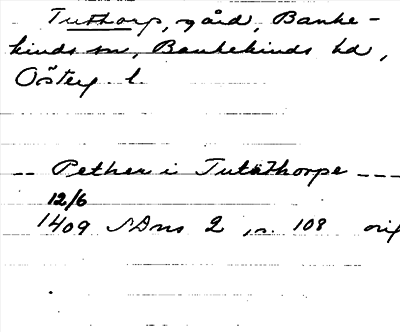 Tuthorp, gård, Banke-
kinds sn, Bankekinds hd,
Österg l.
-- Pether i Tutæthorpe ---
12/6
1409 SDns 2, s. 108 orig